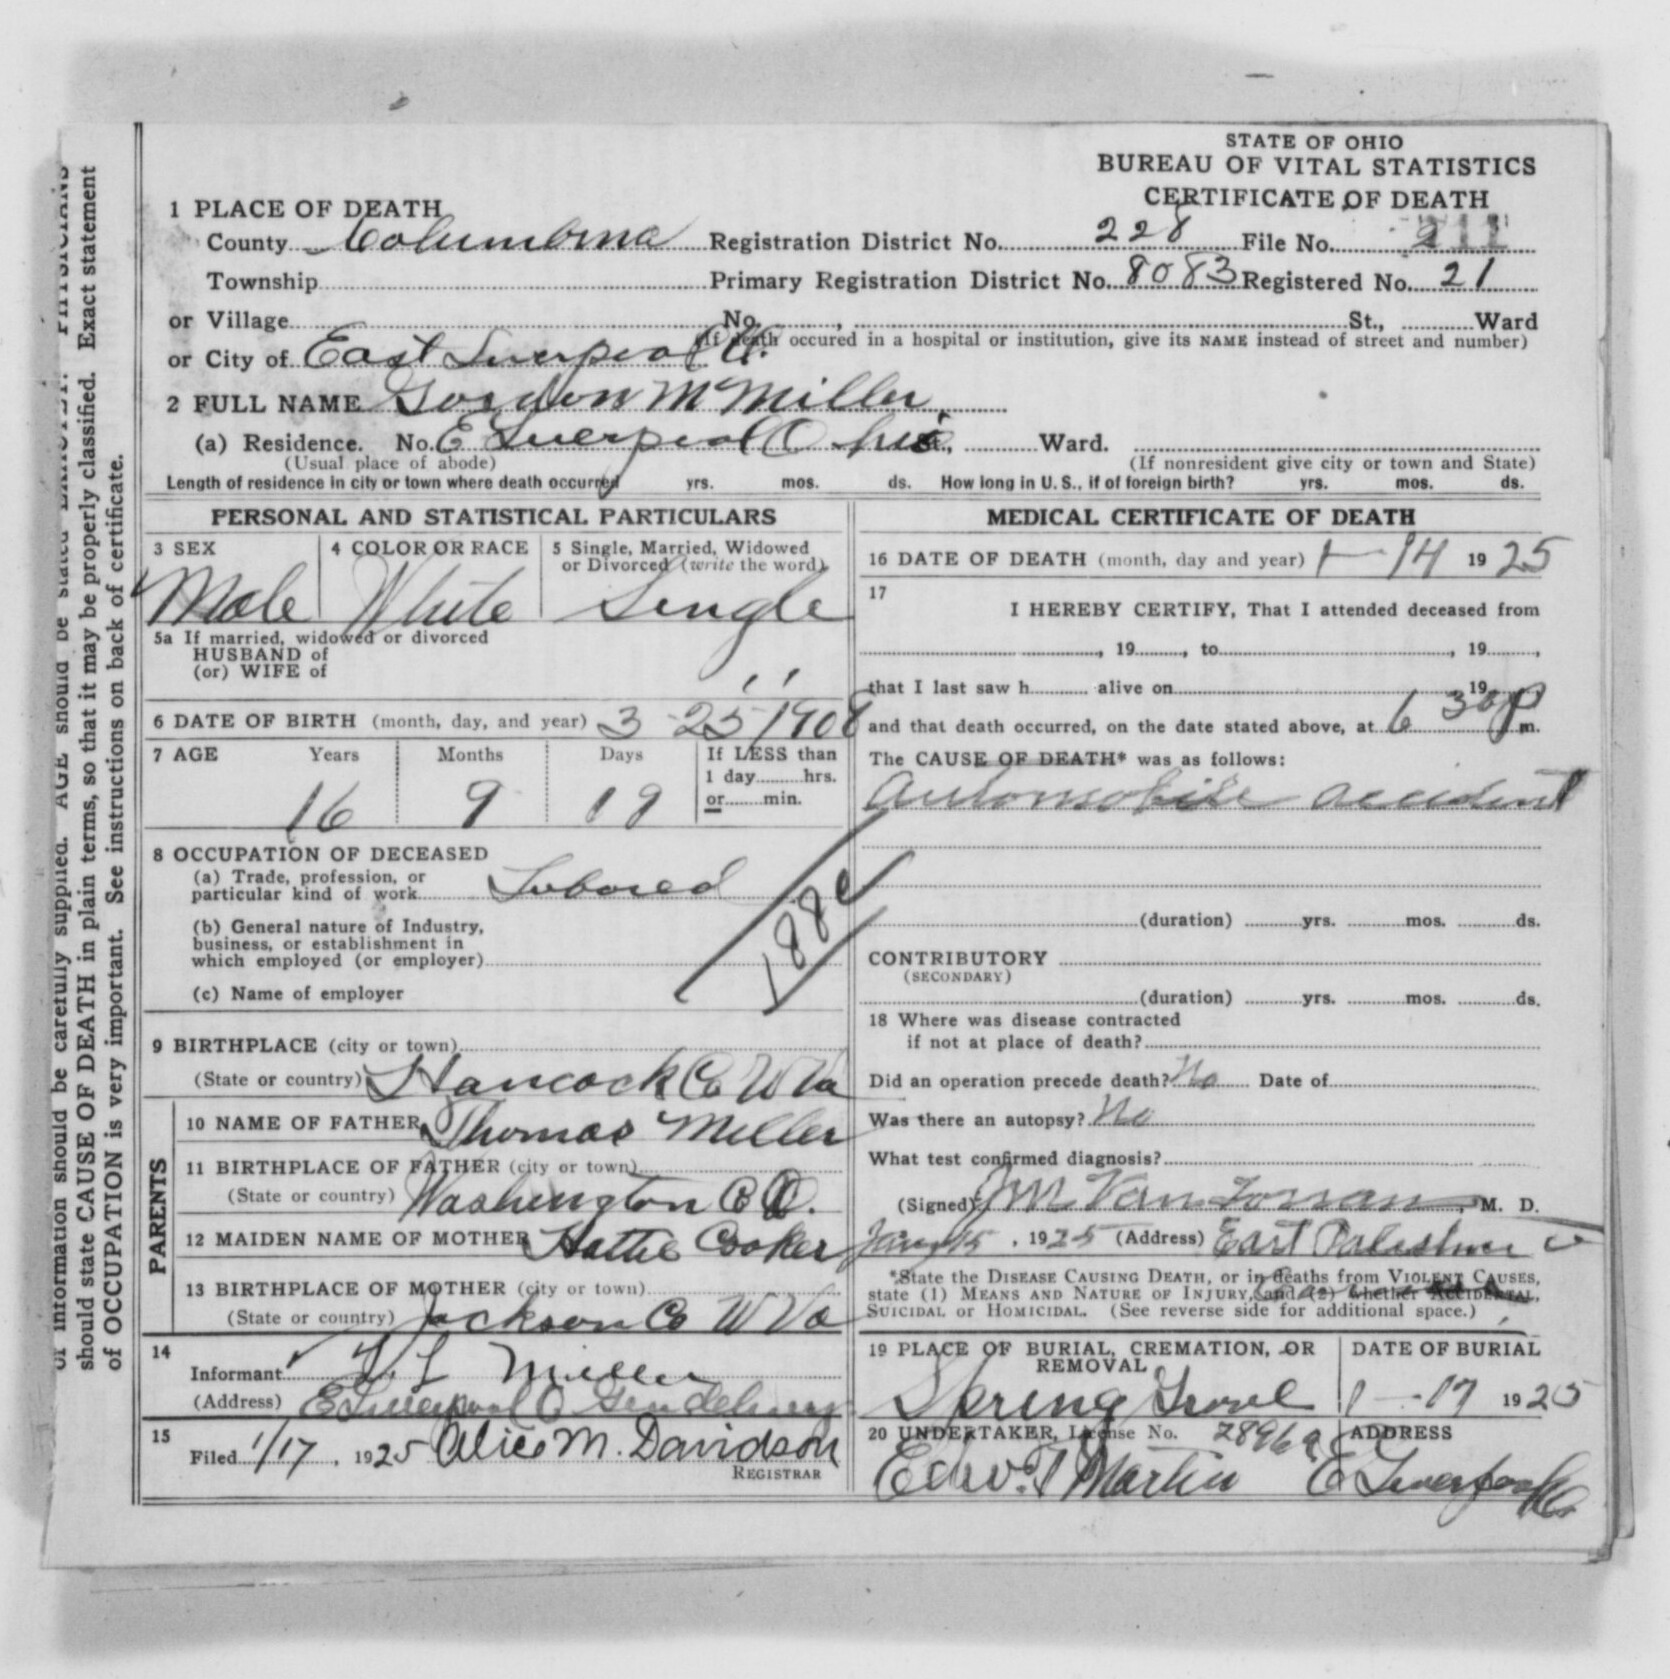 STATE OF OHIO
BUREAU OF VITAL STATISTICS
CERTIFICATE OF DEATH
1 PLACE OF DEATH
County Columbiana Registration District No. 228 File No. 211
Township Primary Registration District No. 8083 Registered No. 21
or Village No. , St., Ward
(If death occured in a hospital or institution, give its NAME instead of street and number)
or City of East Liverpool O.
2 FULL NAME Gordon M Miller
(a) Residence. No. E Liverpool Ohio St., Ward.
(Usual place of abode) (If nonresident give city or town and State)
Length of residence in city or town where death occurred yrs. mos. ds. How long in U. S., if of foreign birth? yrs. mos. ds.
PERSONAL AND STATISTICAL PARTICULARS
3 SEX 4 COLOR OR RACE 5 Single, Married, Widowed
or Divorced (write the word)
Male White Single
5a If married, widowed or divorced
HUSBAND of
(or) WIFE of
6 DATE OF BIRTH (month, day, and year) 3 25 1908
7 AGE Years Months Days If LESS than
1 day hrs.
or min.
16 9 19
8 OCCUPATION OF DECEASED
(a) Trade, profession, or
particular kind of work
(b) General nature of Industry,
business, or establishment in
which employed (or employer)
(c) Name of employer
188c
9 BIRTHPLACE (city or town)
(State or country) Hancock Co W Va
PARENTS
10 NAME OF FATHER Thomas Miller
11 BIRTHPLACE OF FATHER (city or town)
(State or country) Washington Co O.
12 MAIDEN NAME OF MOTHER Hattie Cooker
13 BIRTHPLACE OF MOTHER (city or town)
(State or country) Jackson Co W Va
14
Informant T. L Miller
(Address) E Liverpool O
15
Filed 1/17, 1925 Alice M. Davidson
REGISTRAR
MEDICAL CERTIFICATE OF DEATH
16 DATE OF DEATH (month, day and year) 1 - 14 1925
17
I HEREBY CERTIFY, That I attended deceased from
, 19 , to , 19 ,
that I last saw h alive on 19
and that death occurred, on the date stated above, at 6 30 P m.
The CAUSE OF DEATH* was as follows:
Automobile accident
(duration) yrs. mos. ds.
CONTRIBUTORY
(SECONDARY)
(duration) yrs. mos. ds.
18 Where was disease contracted
if not at place of death?
Did an operation precede death? No Date of
Was there an autopsy? No
What test confirmed diagnosis?
(Signed) J M Van , M. D.
Jany 15, 1925 (Address) East Palestine O
*State the DISEASE CAUSING DEATH, or in deaths from VIOLENT CAUSES,
state (1) MEANS AND NATURE OF INJURY, and (2) whether ACCIDENTAL,
SUICIDAL or HOMICIDAL. (See reverse side for additional space.)
19 PLACE OF BURIAL, CREMATION, OR
REMOVAL
DATE OF BURIAL
Spring Grove 1 - 17 1925
20 UNDERTAKER, License No. 2896a ADDRESS
Edw. T Martin E Liverpool O.
of information should be carefully supplied. AGE should be stated EXACTLY. PHYSICIANS
should state CAUSE OF DEATH in plain terms, so that it may be properly classified. Exact statement
of OCCUPATION is very important. See instructions on back of certificate.